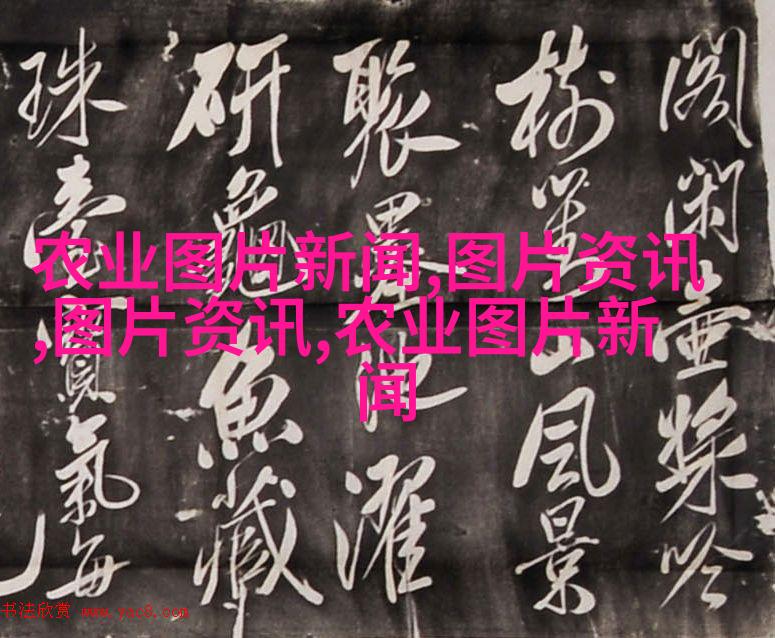 閣閑壺吟
樹山風景
聚墨池濯
研龜魚藏
珠氣每
农业图片新闻,图片资讯
,图片资讯,农业图片新
闻
书法欣赏 www.yac8.com